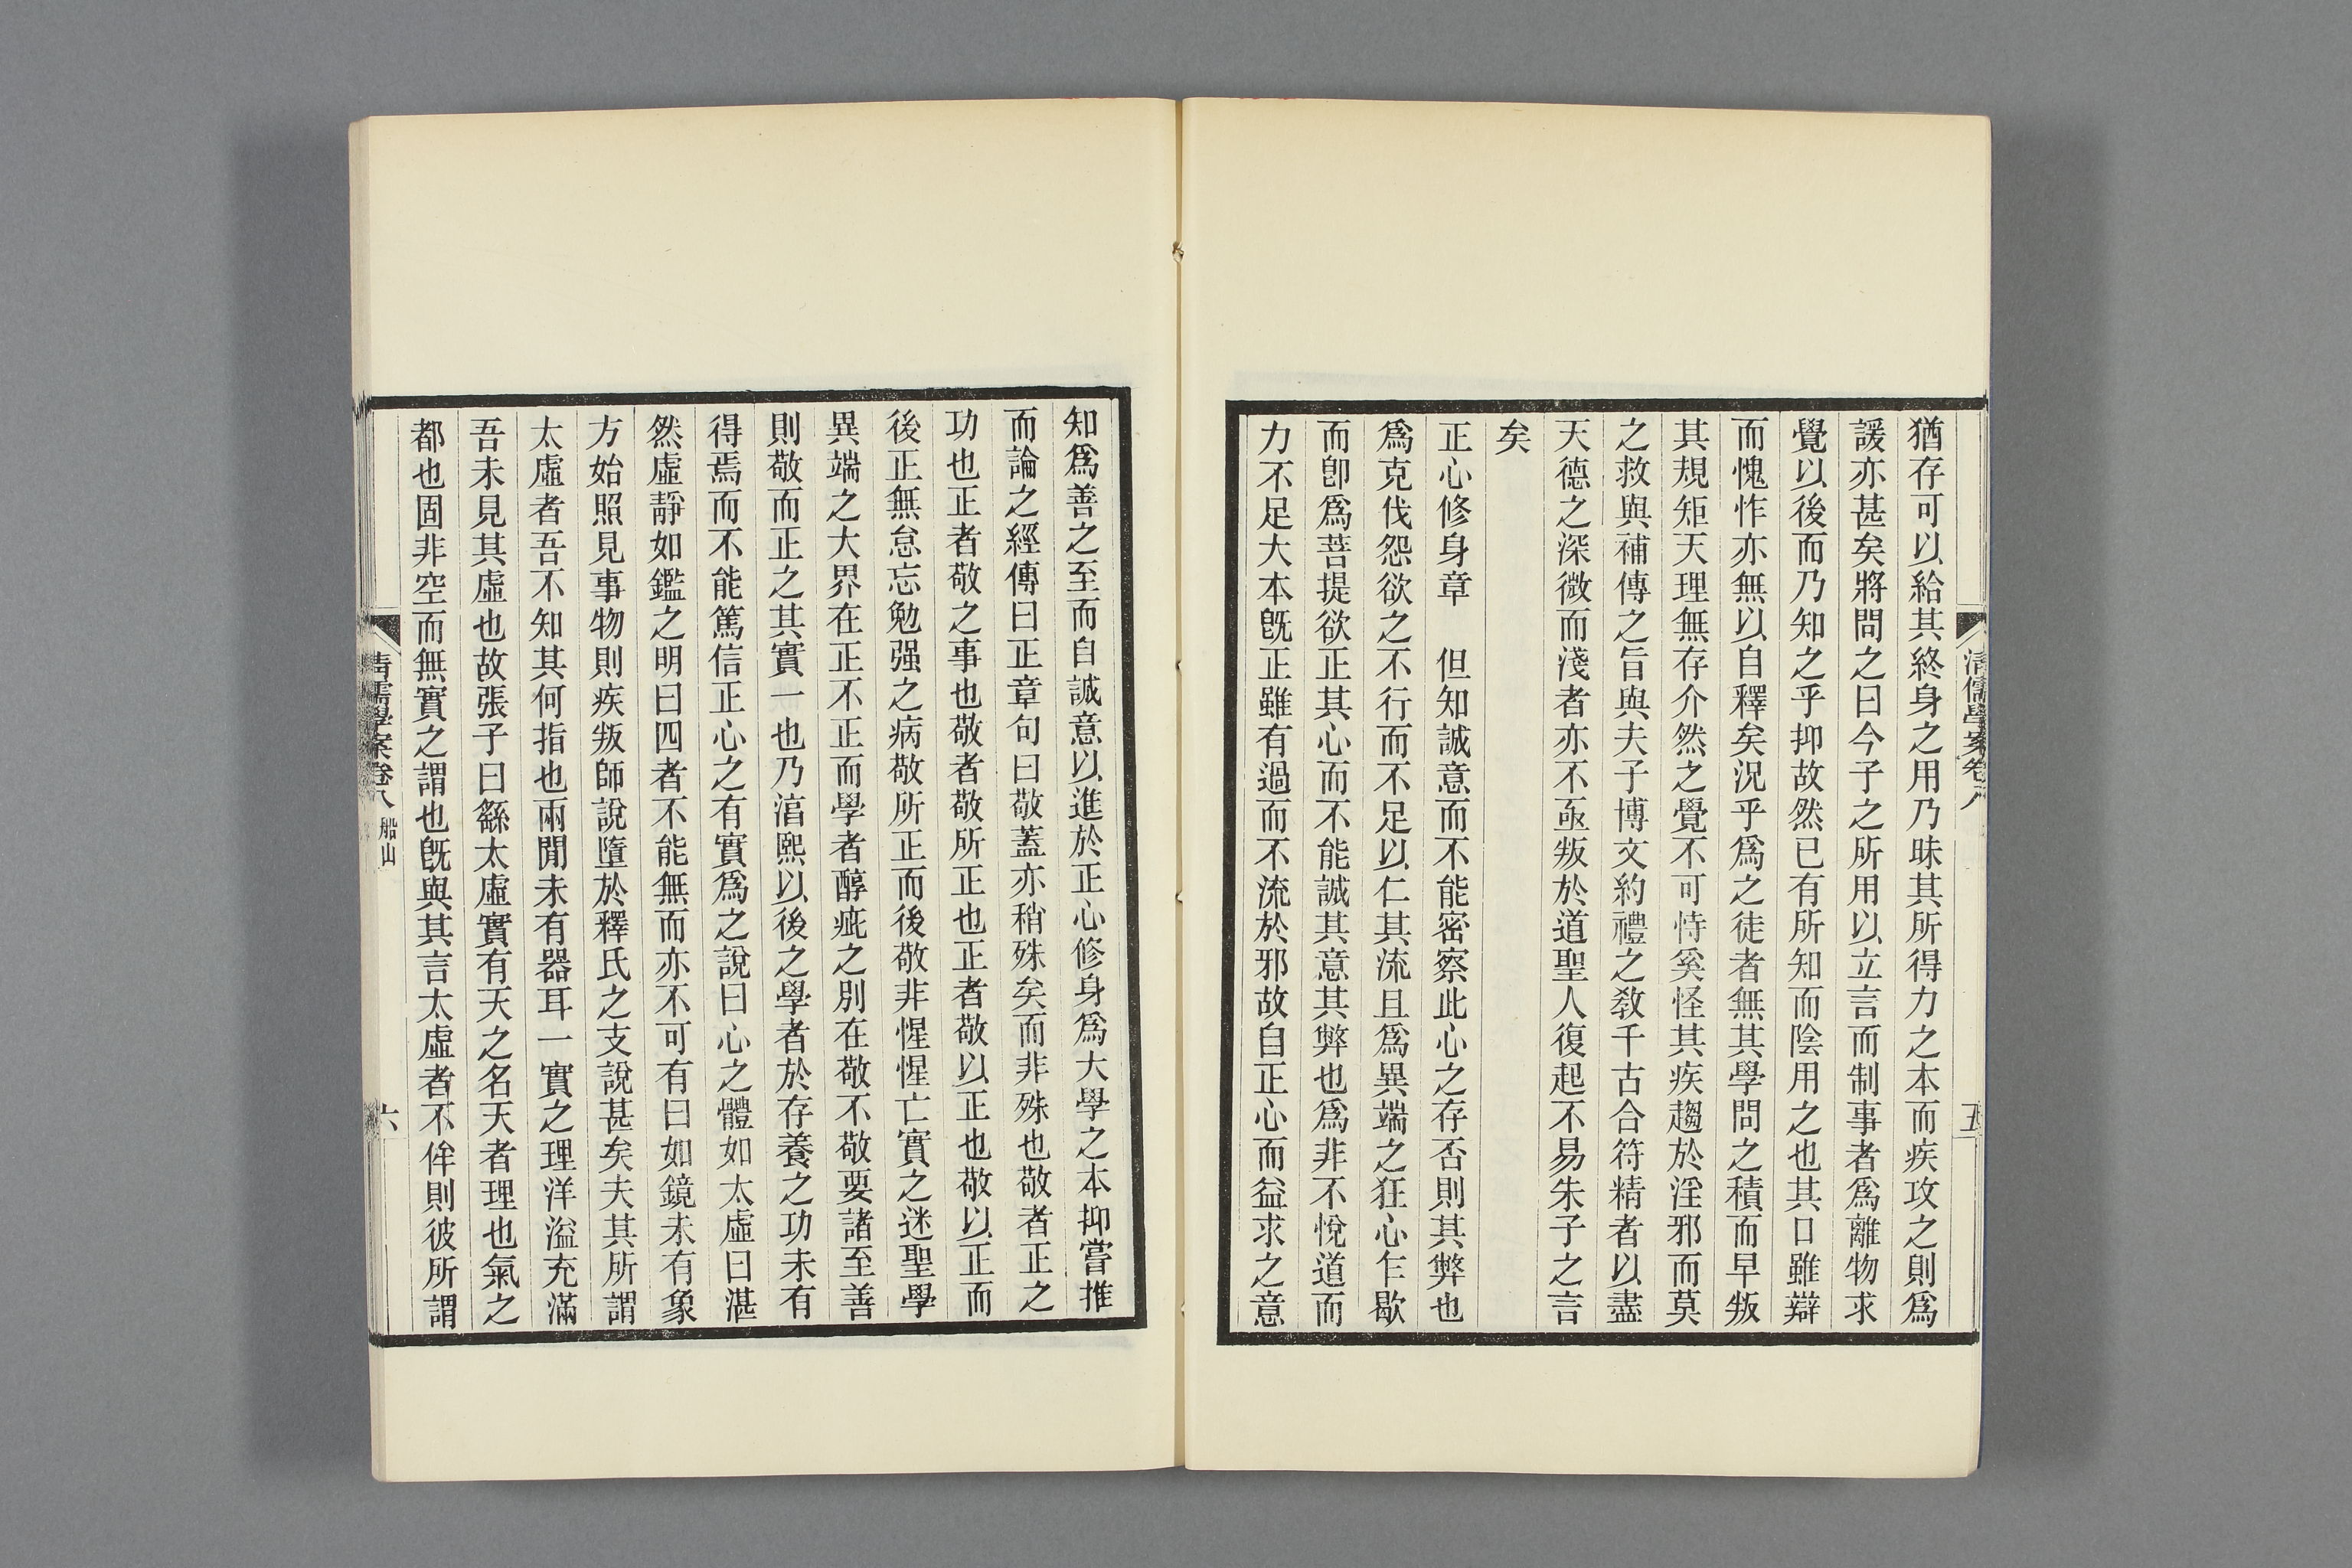 清儒學案卷八
五
猶存可以給其終身之用乃昧其所得力之本而疾攻之則爲
諼亦甚矣將問之曰今子之所用以立言而制事者爲離物求
覺以後而乃知之乎抑故然已有所知而陰用之也其口雖辯
而愧怍亦無以自釋矣況乎爲之徒者無其學問之積而早叛
其規矩天理無存介然之覺不可恃奚怪其疾趨於淫邪而莫
之救與補傳之旨與夫子博文約禮之敎千古合符精者以盡
天德之深微而淺者亦不亟叛於道聖人復起不易朱子之言
矣
正心修身章　但知誠意而不能密察此心之存否則其弊也
爲克伐怨欲之不行而不足以仁其流且爲異端之狂心乍歇
而卽爲菩提欲正其心而不能誠其意其弊也爲非不悅道而
力不足大本旣正雖有過而不流於邪故自正心而益求之意
知爲善之至而自誠意以進於正心修身爲大學之本抑嘗推
而論之經傳曰正章句曰敬蓋亦稍殊矣而非殊也敬者正之
功也正者敬之事也敬者敬所正也正者敬以正也敬以正而
後正無怠忘勉强之病敬所正而後敬非惺惺亡實之迷聖學
異端之大界在正不正而學者醇疵之別在敬不敬要諸至善
則敬而正之其實一也乃淳熙以後之學者於存養之功未有
得焉而不能篤信正心之有實爲之說曰心之體如太虛曰湛
然虛靜如鑑之明曰四者不能無而亦不可有曰如鏡未有象
方始照見事物則疾叛師說墮於釋氏之支說甚矣夫其所謂
太虛者吾不知其何指也兩閒未有器耳一實之理洋溢充滿
吾未見其虛也故張子曰繇太虛實有天之名天者理也氣之
都也固非空而無實之謂也旣與其言太虛者不侔則彼所謂
清儒學案卷八　船山
六